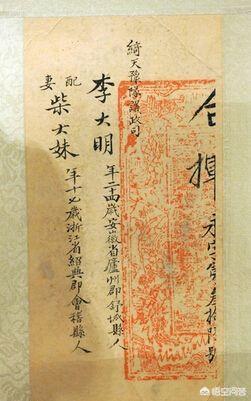 合揮
綺天豫隊議政司
李大明 年二十四歲安徽省廬州郡舒城縣人
配妻 柴大妹 年十七歲浙江省紹興郡會稽縣人
悟空问答